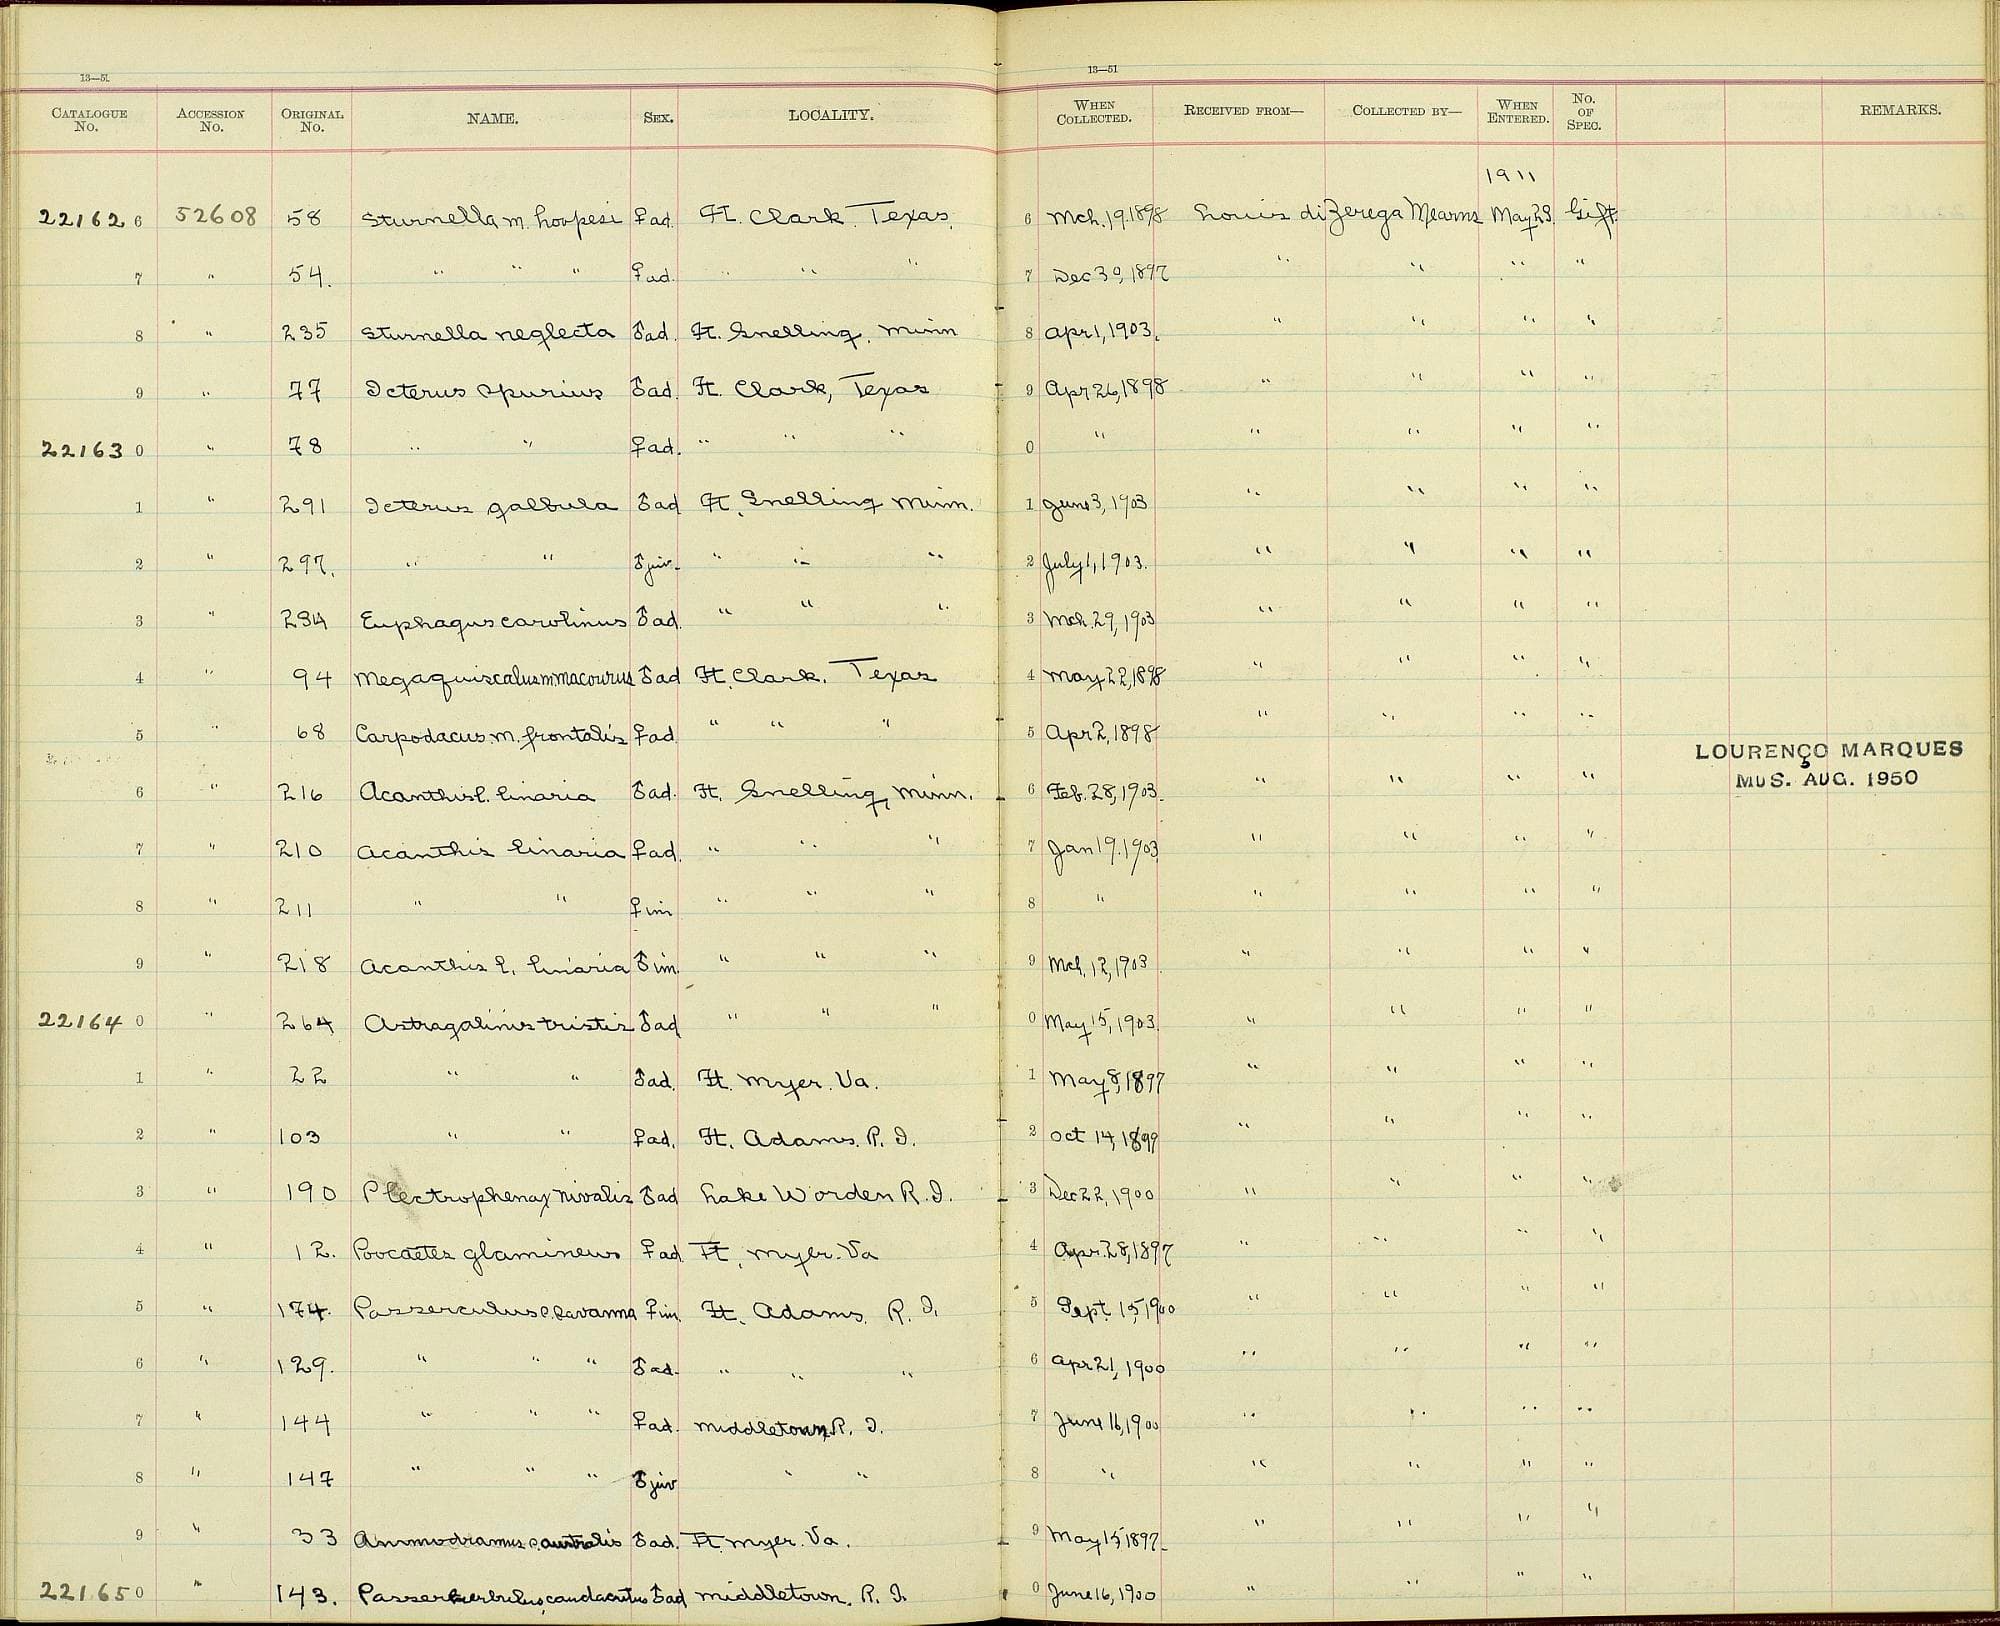 13—51. 13—51
CATALOGUE No. ACCESSION No. ORIGINAL No. NAME. SEX. LOCALITY. WHEN COLLECTED. RECEIVED FROM— COLLECTED BY— WHEN ENTERED. No. OF SPEC. REMARKS.
1911
22162 6 52608 58 Sturnella m. hoopesi ♀ad. Ft. Clark Texas. 6 Mch. 19.1898 Louis di Zerega Mearns May 23. Gift.
7 " 54. " " " ♀ad. " " " 7 Dec 30, 1897 " " " "
8 " 235 Sturnella neglecta ♂ad. Ft. Snelling, Minn 8 Apr 1, 1903. " " " "
9 " 77 Icterus spurius ♂ad. Ft. Clark, Texas 9 Apr 26, 1898 " " " "
22163 0 " 78 " " ♀ad. " " " 0 " " " " "
1 " 291 Icterus galbula ♂ad Ft. Snelling Minn. 1 June 3, 1903 " " " "
2 " 297. " " ♂juv. " " " 2 July 1, 1903. " " " "
3 " 234 Euphagus carolinus ♂ad. " " " 3 Mch. 29, 1903 " " " "
4 " 94 Megaquiscalus m. macourus ♂ad Ft. Clark. Texas 4 May 22, 1898 " " " "
5 " 68 Carpodacus. m. frontalis ♀ad. " " " 5 Apr 2, 1898 " " " "
LOURENÇO MARQUES
MUS. AUG. 1950
6 " 216 Acanthis l. linaria ♂ad. Ft. Snelling, Minn. 6 Feb. 28, 1903. " " " "
7 " 210 Acanthis linaria ♀ad. " " " 7 Jan 19. 1903 " " " "
8 " 211 " " ♀im " " " 8 " " " " "
9 " 218 Acanthis l. linaria ♂im. " " " 9 Mch. 12, 1903 " " " "
22164 0 " 264 Astragalinus tristis ♂ad " " " 0 May 15, 1903. " " " "
1 " 22 " " ♂ad. Ft. Myer. Va. 1 May 8, 1897 " " " "
2 " 103 " " ♀ad. Ft. Adams. R. I. 2 Oct 14, 1899 " " " "
3 " 190 Plectrophenax nivalis ♂ad Lake Worden R. I. 3 Dec 22, 1900 " " " "
4 " 12. Poocaetes glamineus ♀ad Ft. Myer. Va 4 Apr. 28, 1897 " " " "
5 " 174. Passerculus s. savanna ♀im. Ft. Adams. R. I. 5 Sept. 15, 1900 " " " "
6 " 129. " " " ♂ad. " " " 6 Apr 21, 1900 " " " "
7 " 144 " " " ♀ad. Middletown R. I. 7 June 16, 1900 " " " "
8 " 147 " " " ♂juv " " 8 " " " " "
9 " 33 Ammodramus s. australis ♂ad. Ft. Myer. Va. 9 May 15, 1897. " " " "
22165 0 " 143. caudacutus ♂ad Middletown. R. I. 0 June 16, 1900 " " " "